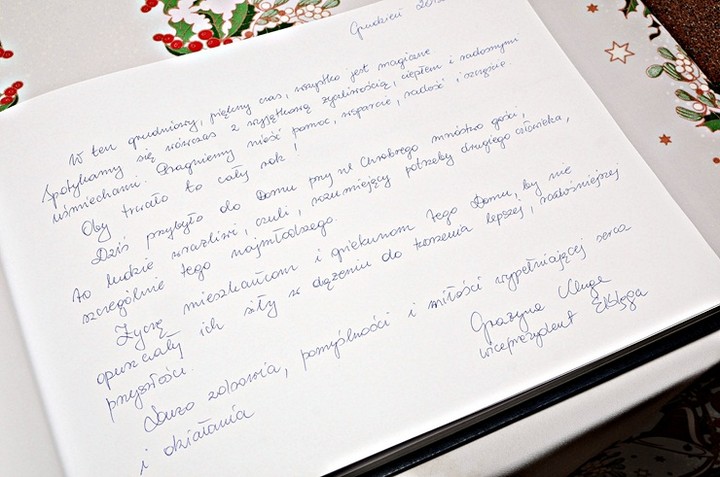 Grudzień 201
W ten grudniowy, piękny czas, wszystko jest magiczne
Spotykamy się wówczas z wyjątkową życzliwością, ciepłem i radosnymi
uśmiechami. Pragniemy nieść pomoc, wsparcie, radość i szczęście.
Oby trwało to cały rok!
Dziś przybyło do Domu przy ul Chrobrego mnóstwo gości,
to ludzie wrażliwi, czuli, rozumiejący potrzeby drugiego człowieka,
szczególnie tego najmłodszego.
Życzę mieszkańcom i opiekunom tego Domu, by nie
opuszczały ich siły w dążeniu do tworzenia lepszej, radośniejszej
przyszłości.
Dużo zdrowia, pomyślności i miłości wypełniającej serca
i działania
Grażyna Kluge
wiceprezydent Elbląga